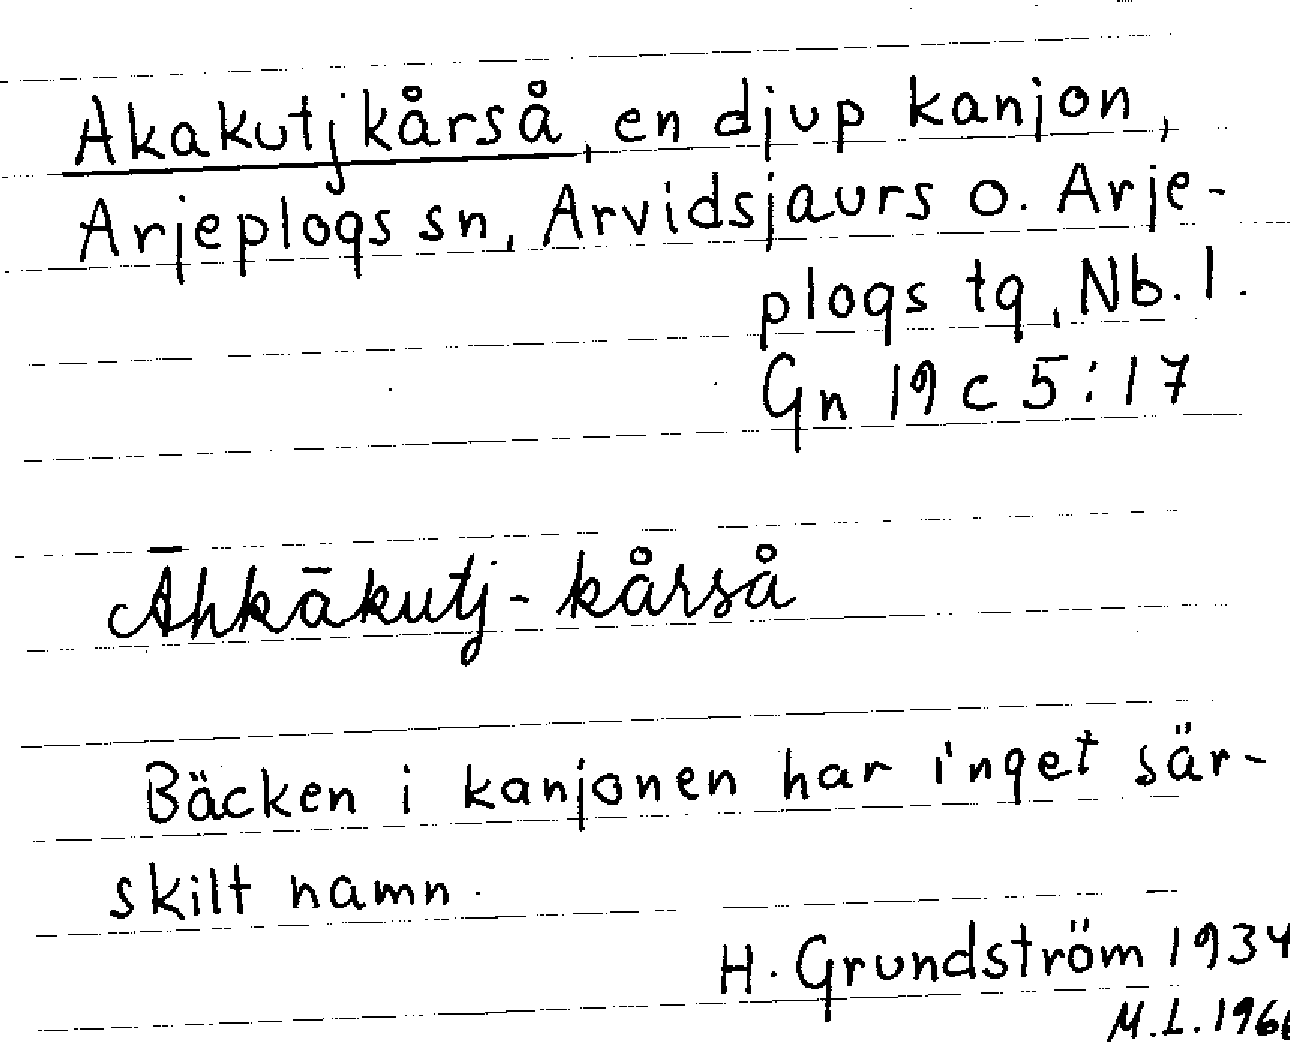 Akakutjkårså, en djup kanjon,
Arjeplogs sn, Arvidsjaurs o. Arje-
plogs tg, Nb. l.
Gn 19 c 5:17
Āhkākutj-kårså
Bäcken i kanjonen har inget sär-
skilt namn.
H. Grundström 1934
M.L. 1966